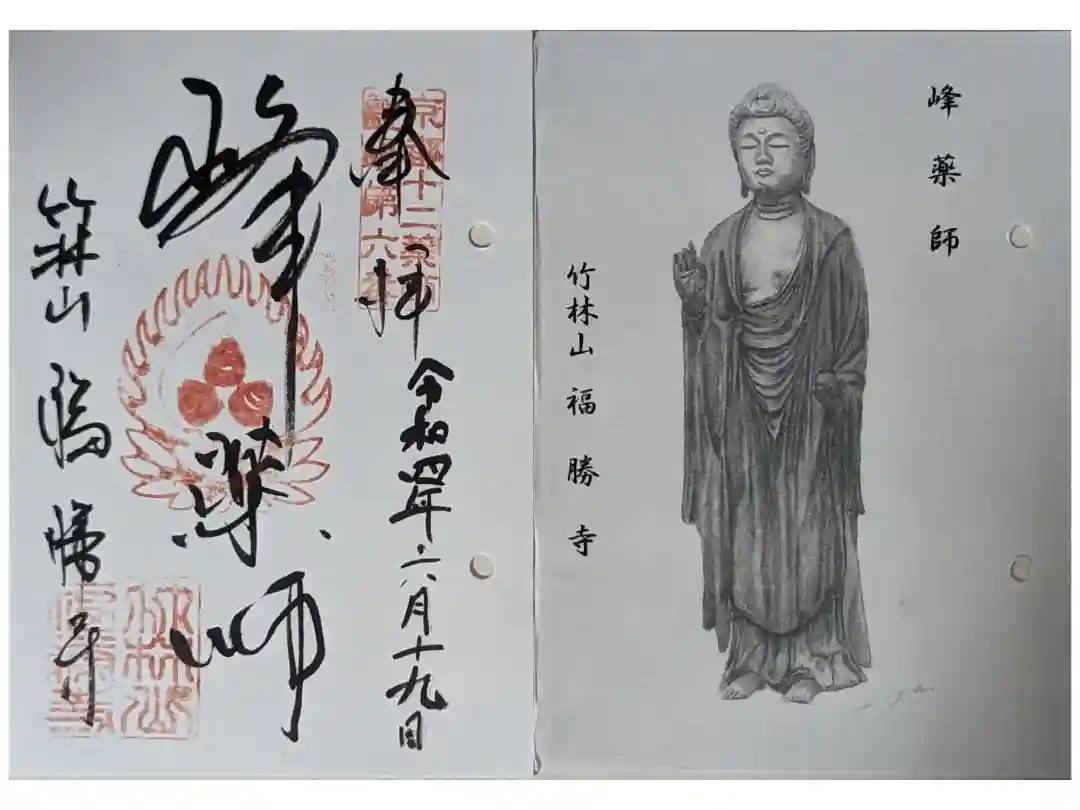 峰薬師
竹林山 福勝寺
奉拝
京都十二薬師
霊場第六番
令和四年六月十九日
峰薬師
竹林山 福勝寺
竹林山
福勝寺